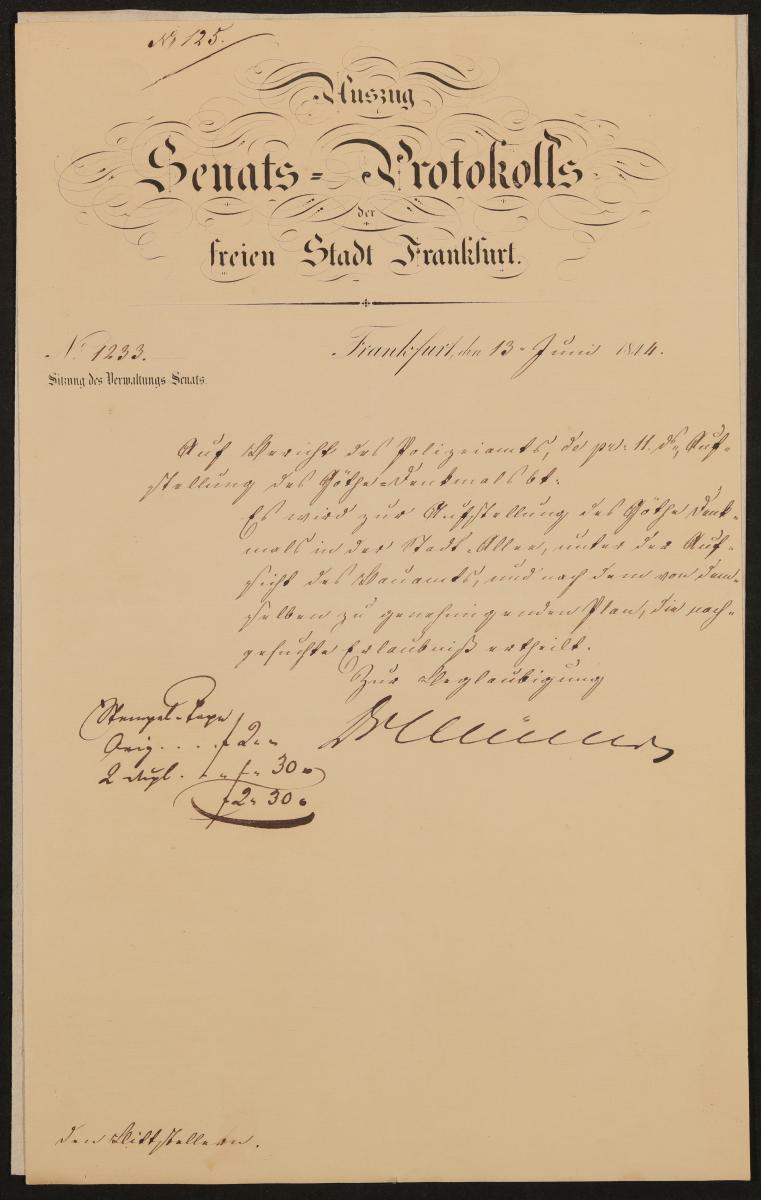 No 125.
Auszug
Senats-Protokolls
der
freien Stadt Frankfurt.
No 1233.
Frankfurt, den 13n Juni 1844.
Sitzung des Verwaltungs-Senats.
Auf Bericht des Polizeiamts, de pr. 11. ds., Auf-
stellung des Göthe-Denkmals bt.
Es wird zur Aufstellung des Göthe Denk-
mals in der Stadt-Allee, unter der Auf-
sicht des Bauamts, und nach dem von dem-
selben zu genehmigenden Plan, die nach-
gesuchte Erlaubniß ertheilt.
Zur Beglaubigung
Stempel-Taxe
Orig. . . . f 2 " "
2 dupl. . " f " 30 "
f 2 " 30 "
den Bittstellern.